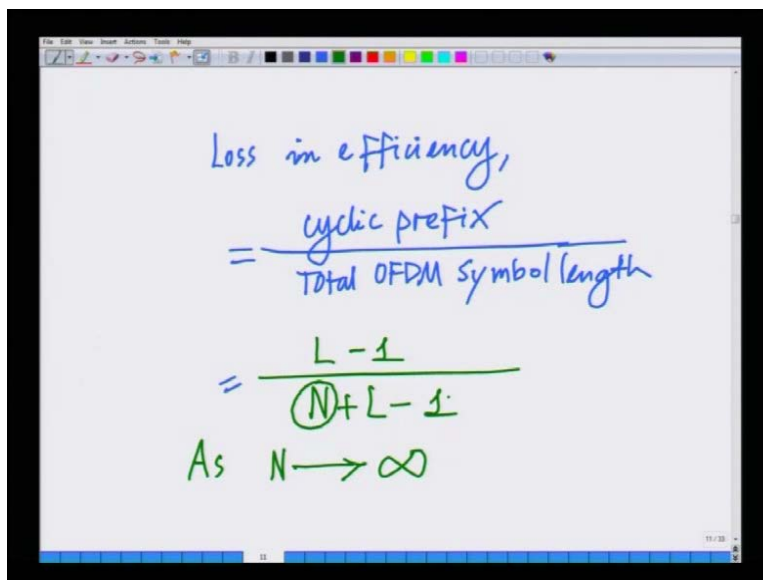 File Edit View Insert Actions Tools Help
Loss in efficiency,
= cyclic prefix
Total OFDM symbol length
= L - 1
N + L - 1
As N → ∞
11
11 / 33